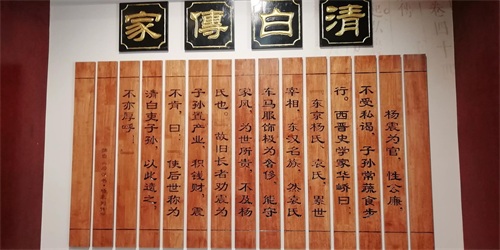 清白傳家
杨震为官，性公廉，
不受私谒。子孙常蔬食步
行。西晋史学家华峤曰：
东京杨氏、袁氏，累世
宰相，东汉名族。然袁氏
车马服饰极为奢侈，能守
家风，为世所贵，不及杨
氏也。故旧长者劝震为
子孙置产业，积钱财，震
不肯，曰：使后世称为
清白吏子孙，以此遗之，
不亦厚乎！